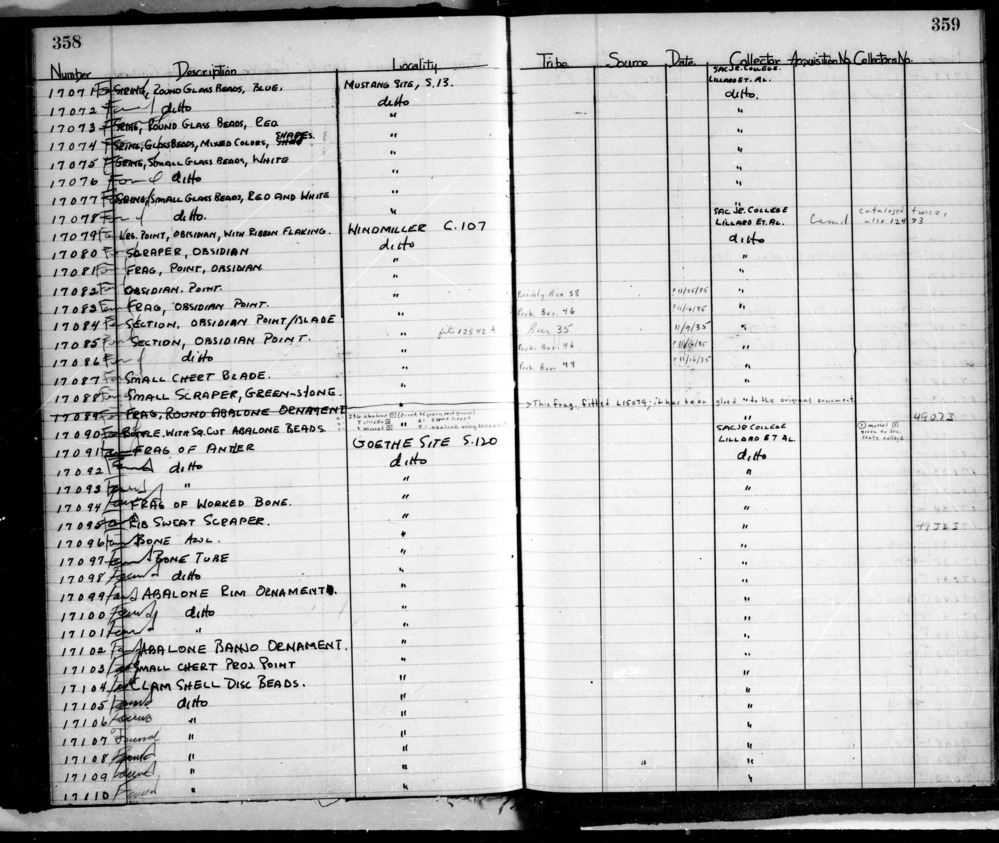 358
359
Number Description Locality Tribe Source Date Collector Acquisition No. Collectors No.
SAC JR. COLLEGE
LILLARD ET. AL.
17071 Found STRING, ROUND GLASS BEADS, BLUE. MUSTANG SITE, S.13. ditto.
17072 Found ditto ditto "
17073 STRING, ROUND GLASS BEADS, RED " "
17074 STRING, GLASS BEADS, MIXED COLORS, SHAPES. " "
17075 STRING, SMALL GLASS BEADS, WHITE " "
17076 Found ditto " "
17077 STRING, SMALL GLASS BEADS, RED AND WHITE " "
17078 Found ditto. " SAC JR. COLLEGE
17079 LRG. POINT, OBSIDIAN, WITH RIBBON FLAKING. WINDMILLER C.107 LILLARD ET. AL. cataloged twice, also 12473
17080 Found SCRAPER, OBSIDIAN ditto ditto
17081 Found FRAG, POINT, OBSIDIAN. " "
17082 Found OBSIDIAN. POINT. " "
17083 Found FRAG, OBSIDIAN POINT. " Possibly Bur 58 ? 11/25/35 "
17084 Found SECTION, OBSIDIAN POINT/BLADE " Prob. Bur. 46 ? 11/16/35 "
17085 Found SECTION, OBSIDIAN POINT. " fits 12542 A Bur 35 11/9/35 "
17086 Found ditto " Prob. Bur. 46 ? 11/16/35 "
17087 Found SMALL CHERT BLADE. " Prob. Bur. 44 ? 11/16/35 "
17088 Found SMALL SCRAPER, GREEN-STONE. " "
17089 FRAG, ROUND ABALONE ORNAMENT " → This frag. fitted L15079; it has been glued to the original ornament
17090 BOTTLE, WITH SQ. CUT ABALONE BEADS. " " 49073
17091 Found FRAG OF ANTLER GOETHE SITE S.120 SAC JR COLLEGE LILLARD ET AL. ① mussel given to Sac. State College
17092 Found ditto ditto ditto
17093 Found " " "
17094 Found FRAG OF WORKED BONE. " "
17095 Found RIB SWEAT SCRAPER. " "
17096 Found BONE AWL. " " 71325
17097 Found BONE TUBE " "
17098 Found ditto " "
17099 Found ABALONE RIM ORNAMENT. " "
17100 Found ditto " "
17101 Found " " "
17102 Found ABALONE BANJO ORNAMENT. " "
17103 SMALL CHERT PROJ POINT " "
17104 CLAM SHELL DISC BEADS. " "
17105 Found ditto " "
17106 Found " " "
17107 Found " " "
17108 Found " " "
17109 Found " " " "
17110 Found " " "